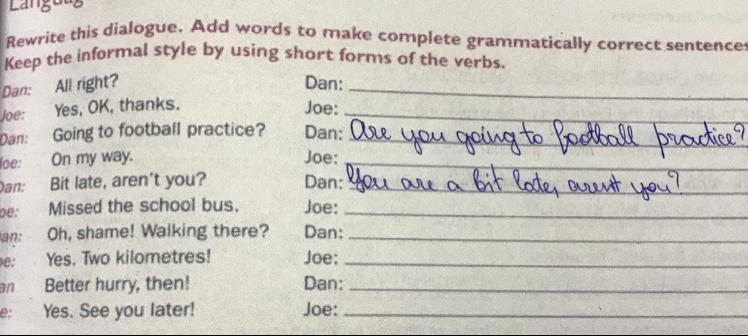 Rewrite this dialogue. Add words to make complete grammatically correct sentences
Keep the informal style by using short forms of the verbs.
Dan: All right? Dan:
Joe: Yes, OK, thanks. Joe:
Dan: Going to football practice? Dan: Are you going to football practice?
Joe: On my way. Joe:
Dan: Bit late, aren't you? Dan: You are a bit late, arent you?
oe: Missed the school bus. Joe:
an: Oh, shame! Walking there? Dan:
e: Yes. Two kilometres! Joe:
an Better hurry, then! Dan:
e: Yes. See you later! Joe: